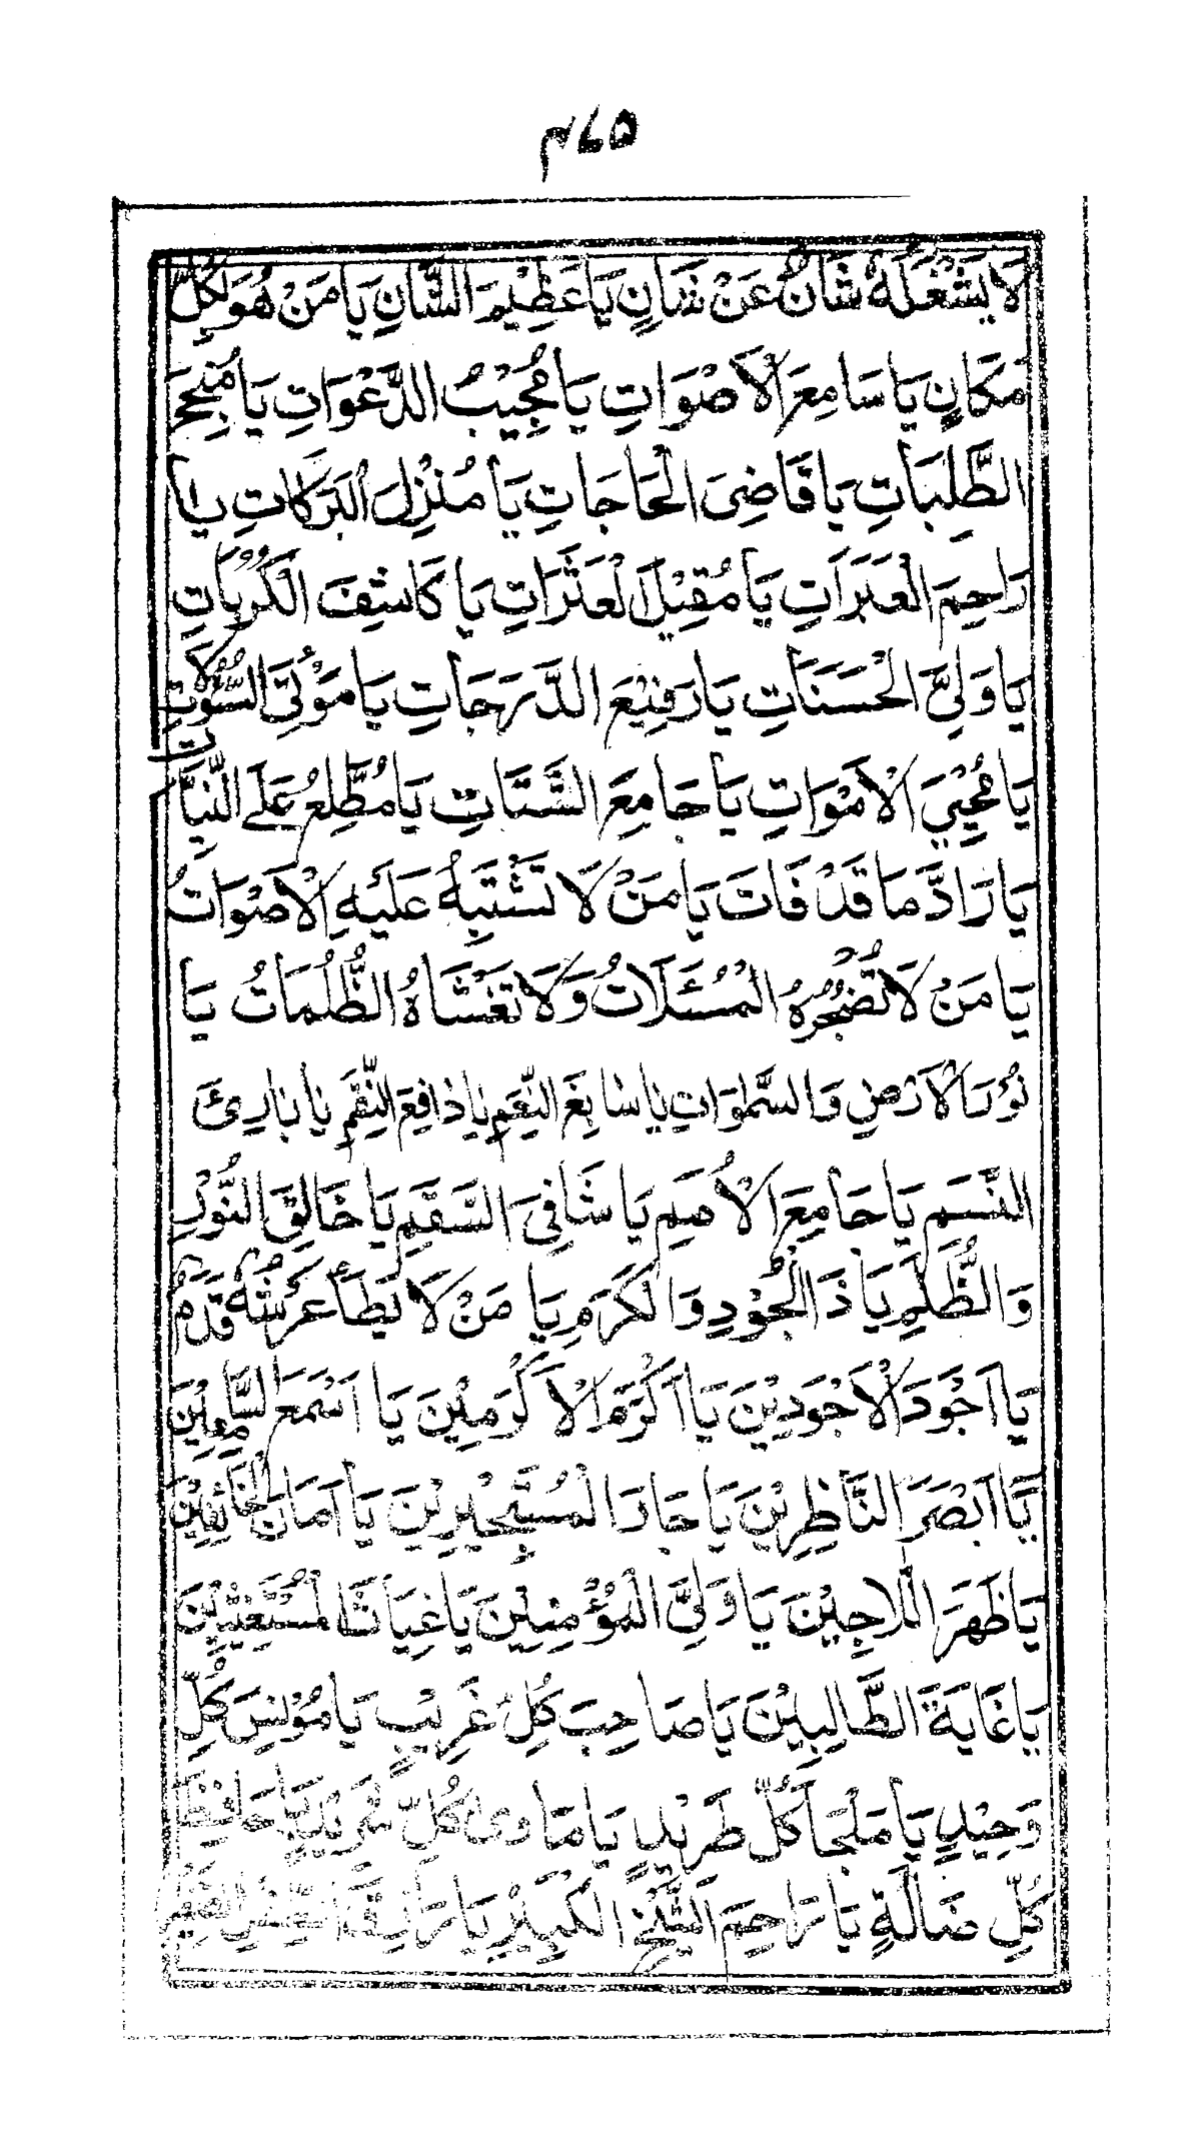 ۳۶۵
لَا يَشْغَلُهُ شَانٌ عَنْ شَانٍ يَا عَظِيْمَ الشَّانِ يَا مَنْ هُوَ بِكُلِّ
مَكَانٍ يَا سَامِعَ الْاَصْوَاتِ يَا مُجِيْبُ الدَّعْوَاتِ يَا مُنْجِحَ
الطَّلِبَاتِ يَا قَاضِىَ الْحَاجَاتِ يَا مُنْزِلَ الْبَرَكَاتِ يَا
رَاحِمَ الْعَبَرَاتِ يَا مُقِيْلَ الْعَثَرَاتِ يَا كَاشِفَ الْكُرُبَاتِ
يَا وَلِىَّ الْحَسَنَاتِ يَا رَفِيْعَ الدَّرَجَاتِ يَا مُؤْتِىَ السُّؤُلَاتِ
يَا مُحْيِيَ الْاَمْوَاتِ يَا جَامِعَ الشَّتَاتِ يَا مُطَّلِعُ عَلَى النِّيَّاتِ
يَا رَادَّ مَا قَدْ فَاتَ يَا مَنْ لَا تَشْتَبِهُ عَلَيْهِ الْاَصْوَاتُ
يَا مَنْ لَا تُضْجِرُهُ الْمَسْئَلَاتُ وَلَا تَغْشَاهُ الظُّلُمَاتُ يَا
نُوْرَ الْاَرْضِ وَالسَّمٰوَاتِ يَا سَابِغَ النِّعَمِ يَا دَافِعَ النِّقَمِ يَا بَارِئَ
النَّسَمِ يَا جَامِعَ الْاُمَمِ يَا شَافِىَ السَّقَمِ يَا خَالِقَ النُّوْرِ
وَالظُّلَمِ يَا ذَا الْجُوْدِ وَالْكَرَمِ يَا مَنْ لَا يَطَأُ عَرْشَهُ قَدَمٌ
يَا اَجْوَدَ الْاَجْوَدِيْنَ يَا اَكْرَمَ الْاَكْرَمِيْنَ يَا اَسْمَعَ السَّامِعِيْنَ
يَا اَبْصَرَ النَّاظِرِيْنَ يَا جَارَ الْمُسْتَجِيْرِيْنَ يَا اَمَانَ الْخَائِفِيْنَ
يَا ظَهَرَ اللَّاجِيْنَ يَا وَلِىَّ الْمُؤْمِنِيْنَ يَا غِيَاثَ الْمُسْتَغِيْثِيْنَ
يَا غَايَةَ الطَّالِبِيْنَ يَا صَاحِبَ كُلِّ غَرِيْبٍ يَا مُوْنِسَ كُلِّ
وَحِيْدٍ يَا مَلْجَا كُلِّ طَرِيْدٍ يَا مَاوٰى كُلِّ شَرِيْدٍ يَا حَافِظَ
كُلِّ ضَالَّةٍ يَا رَاحِمَ الشَّيْخِ الْكَبِيْرِ يَا رَازِقَ الطِّفْلِ الصَّغِيْرِ